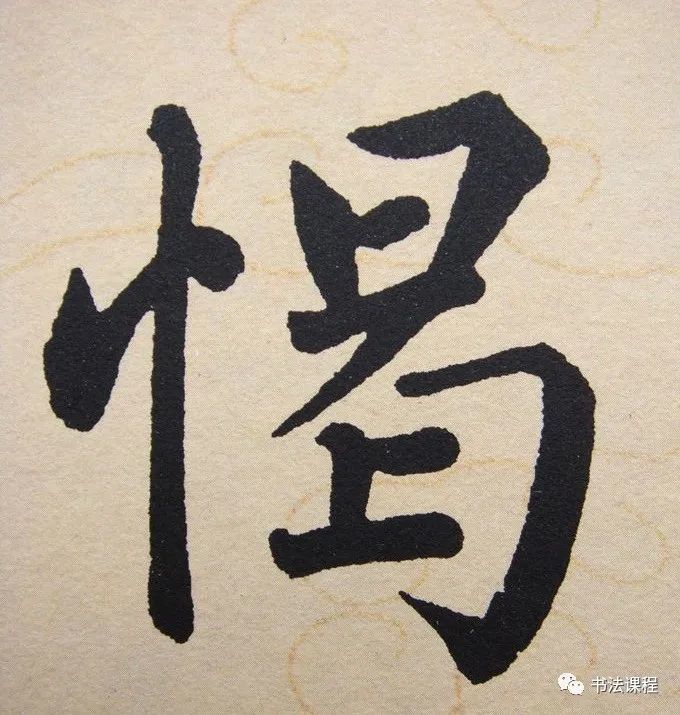 愒
书法课程